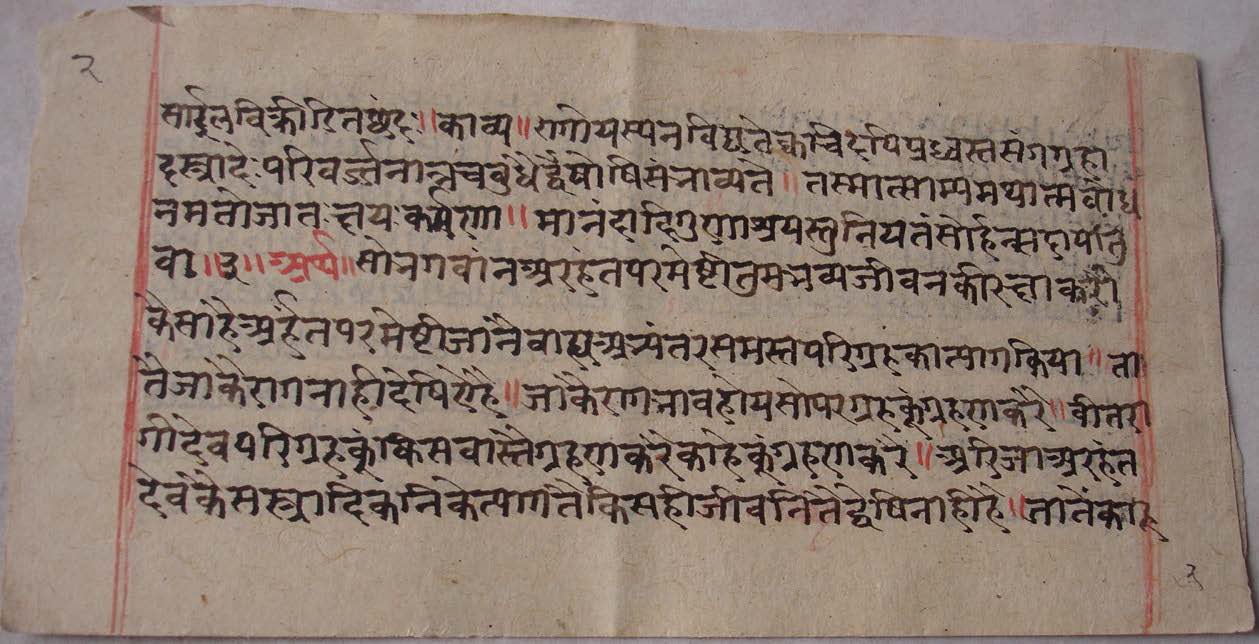 २
सार्दुलविक्रीडितछंदः ॥ काव्य ॥ रागोयस्यनविद्यतेक्वचिदपिप्रध्वस्तसंगग्रहा
दस्त्रादेः परिवर्ज्जनान्नचबुधेर्द्वेषोपिसंभाव्यते ॥ तस्मात्साम्यमथात्मबोध
नमतोजातः क्षयः कर्मणा ॥ मानंदादिगुणाश्रयस्तुनियतंसोर्हन्सदापातु
वा ॥३॥ अर्थ ॥ सोभगवांनअरहंतपरमेष्टीतुमभव्यजीवनकीरक्षाकरौ
कैसांहैअर्हंतपरमेष्टीजांनैवाह्यअभ्यंतरसमस्तपरिग्रहकात्यागकिया ॥ ता
तैजाकैरागनाहीदेषिऐहै ॥ जाकैरागभावहोयसोपरग्रहकुंग्रहणकरै ॥ वीतरा
गीदेवपरिग्रहकुंकिसवास्तैग्रहणकरेकाहेकुंग्रहणकरै ॥ अरिजाअरहंत
देवकैसस्त्रादिकनिकेत्यागतैकिसहीजीवनितैद्वेषिनाहीहै ॥ तातैकाहू
२